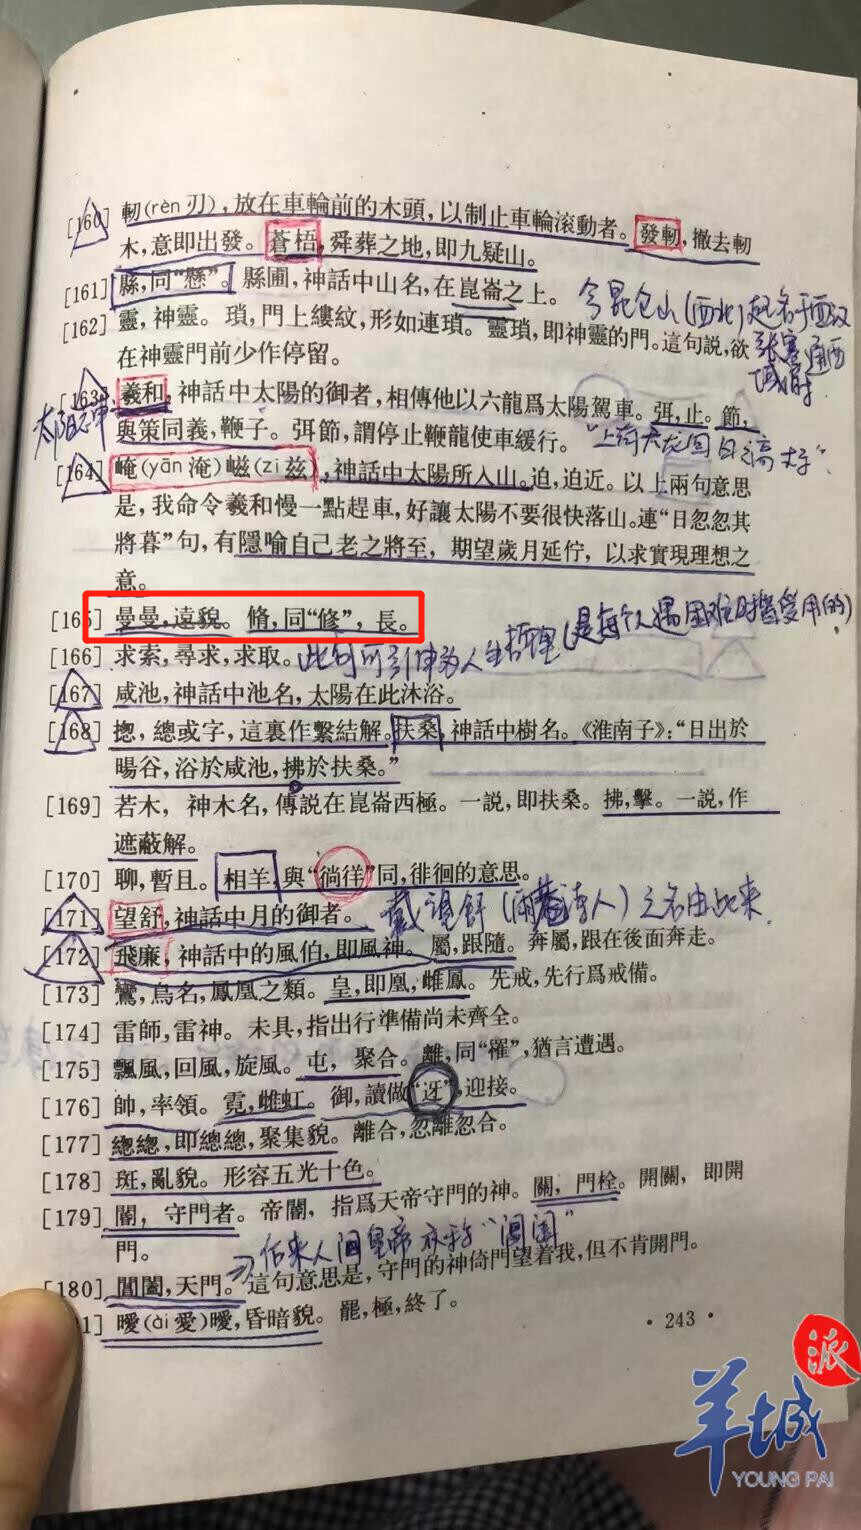 [160] 軔(rèn刃)，放在車輪前的木頭，以制止車輪滚動者。發軔，撤去軔
木，意即出發。蒼梧，舜葬之地，即九疑山。
[161] 縣，同“懸”。縣圃，神話中山名，在崑崙之上。
今昆仑山(西北)起名于西汉
张骞通西
域时
[162] 靈，神靈。瑣，門上縷紋，形如連瑣。靈瑣，即神靈的門。這句説，欲
在神靈門前少作停留。
[163] 羲和，神話中太陽的御者，相傳他以六龍爲太陽駕車。弭，止。節，
與策同義，鞭子。弭節，謂停止鞭龍使車緩行。
太阳之车
“上有六龙回日之高标”
[164] 崦(yān淹)嵫(zī兹)，神話中太陽所入山。迫，迫近。以上兩句意思
是，我命令羲和慢一點趕車，好讓太陽不要很快落山。連“日忽忽其
將暮”句，有隱喻自己老之將至，期望歲月延佇，以求實現理想之
意。
[165] 曼曼，遠貌。脩，同“修”，長。
[166] 求索，尋求，求取。
此句可引申为人生哲理(是每个人遇困难时皆受用的)
[167] 咸池，神話中池名，太陽在此沐浴。
[168] 揔，總或字，這裏作繫結解。扶桑，神話中樹名。《淮南子》：“日出於
暘谷，浴於咸池，拂於扶桑。”
[169] 若木，神木名，傳説在崑崙西極。一説，即扶桑。拂，擊。一説，作
遮蔽解。
[170] 聊，暫且。相羊，與“徜徉”同，徘徊的意思。
[171] 望舒，神話中月的御者。
戴望舒(诗人)之名由此来
[172] 飛廉，神話中的風伯，即風神。屬，跟隨。奔屬，跟在後面奔走。
[173] 鸞，鳥名，鳳凰之類。皇，即凰，雌鳳。先戒，先行爲戒備。
[174] 雷師，雷神。未具，指出行準備尚未齊全。
[175] 飄風，回風，旋風。屯，聚合。離，同“罹”，猶言遭遇。
[176] 帥，率領。霓，雌虹。御，讀做“迓”，迎接。
[177] 緫緫，即總總，聚集貌。離合，忽離忽合。
[178] 斑，亂貌。形容五光十色。
[179] 閽，守門者。帝閽，指爲天帝守門的神。關，門栓。開關，即開
門。
后来人间皇帝亦称“閶闔”
[180] 閶闔，天門。這句意思是，守門的神倚門望着我，但不肯開門。
1] 曖(ài愛)曖，昏暗貌。罷，極，終了。
·243·
派
羊城
YOUNG PAI